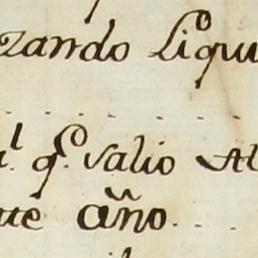 zando Liqui
l qe. Salio Al
te año.